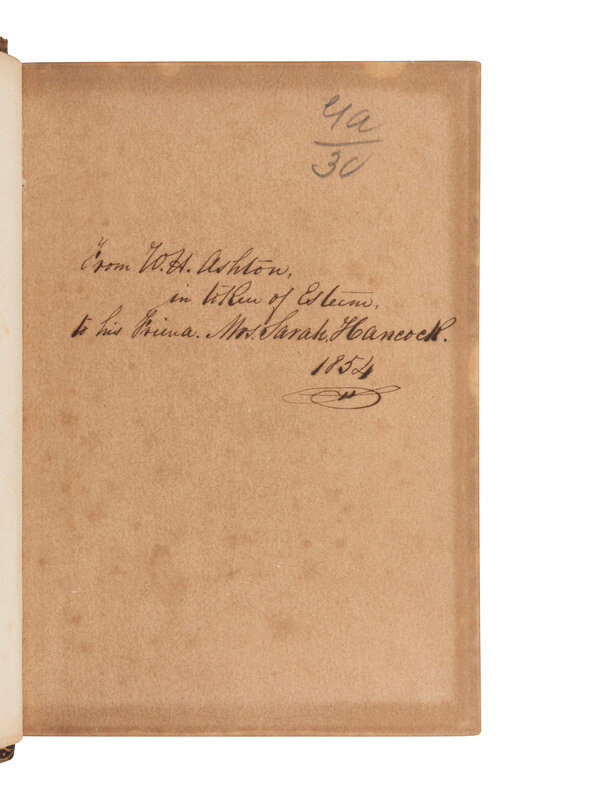 30
From W.H. Ashton,
in token of Esteem,
to his Friend. Mrs. Sarah, Hancock.
1854